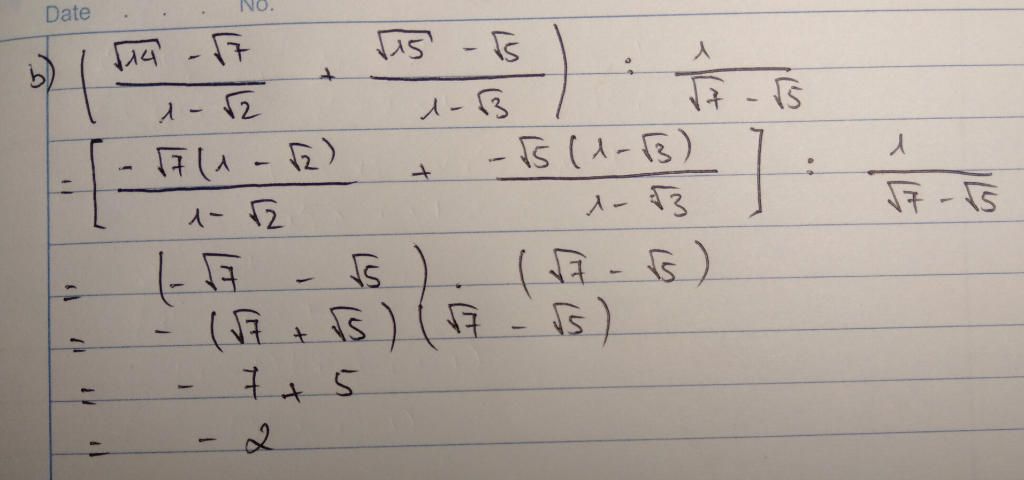 Date . . . No.
b) ( (√14 - √7)/(1 - √2) + (√15 - √5)/(1 - √3) ) : 1/(√7 - √5)
= [ (-√7(1 - √2))/(1 - √2) + (-√5(1 - √3))/(1 - √3) ] : 1/(√7 - √5)
= (-√7 - √5) . (√7 - √5)
= - (√7 + √5)(√7 - √5)
= - 7 + 5
= - 2